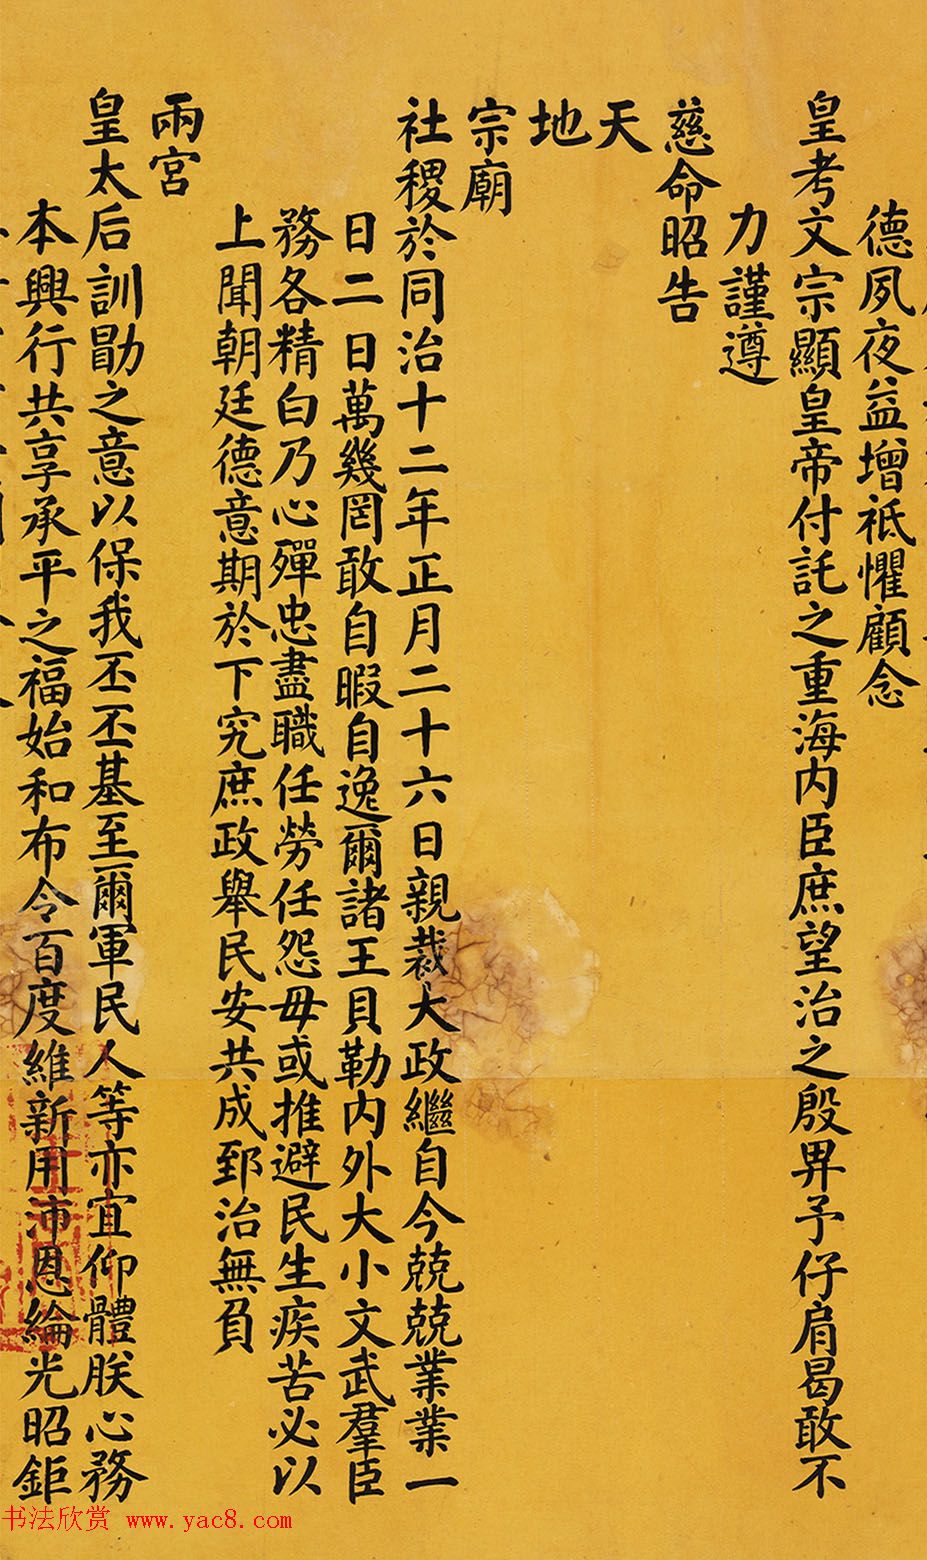 德夙夜益增祗懼顧念
皇考文宗顯皇帝付託之重海内臣庶望治之殷畀予仔肩曷敢不
力謹遵
慈命昭告
天
地
宗廟
社稷於同治十二年正月二十六日親裁大政繼自今兢兢業業一
日二日萬幾罔敢自暇自逸爾諸王貝勒内外大小文武羣臣
務各精白乃心殫忠盡職任勞任怨毋或推避民生疾苦必以
上聞朝廷德意期於下究庶政舉民安共成郅治無負
兩宫
皇太后訓勖之意以保我丕丕基至爾軍民人等亦宜仰體朕心務
本興行共享承平之福始和布令百度維新用沛恩綸光昭鉅
书法欣赏 www.yac8.com